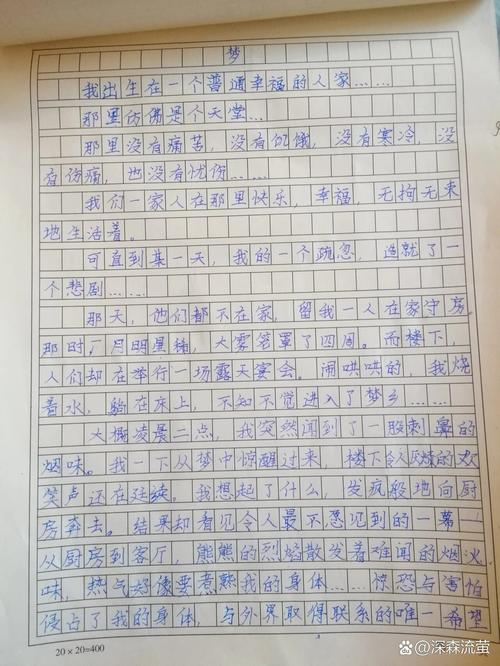 梦
我出生在一个普通幸福的人家……
那里仿佛是个天堂…
那里没有痛苦，没有饥饿，没有寒冷，没
有伤痛，也没有忧伤……
我们一家人在那里快乐，幸福，无拘无束
地生活着。
可直到某一天，我的一个疏忽，造就了一
个悲剧……
那天，他们都不在家，留我一人在家守房
那时，月明星稀，大雾笼罩了四周。而楼下，
人们却在举行一场露天宴会。闹哄哄的，我烧
着水，躺在床上，不知不觉进入了梦乡……
大概凌晨二点，我突然闻到了一股刺鼻的
烟味。我一下从梦中惊醒过来，楼下令人厌烦的欢
笑声还在延续。我想起了什么，发疯般地向厨
房奔去。结果却看见令人最不恐见到的一幕一
从厨房到客厅，熊熊的烈焰散发着难闻的烟火
味，热气好像要煮熟我的身体……惊恐与害怕
侵占了我的身体，与外界取得联系的唯一希望
20×20=400
@深森流萤